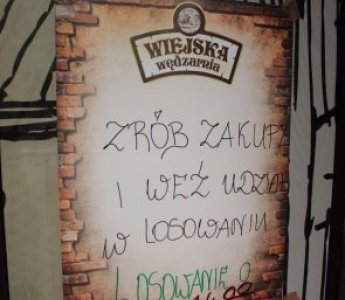 WIEJSKA
wędzarnia
ZRÓB ZAKUPY
I WEŹ UDZIAŁ
W LOSOWANIU
LOSOWANIE O